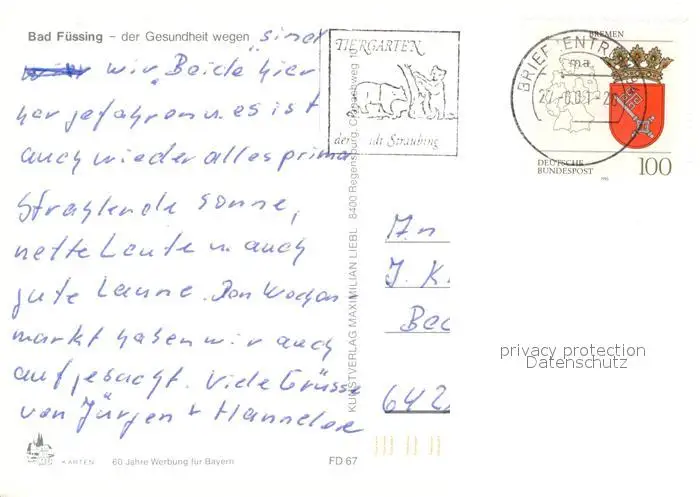 Bad Füssing – der Gesundheit wegen sind
wir Beide hier
her gefahren u. es ist
auch wieder alles prima
Strahlende Sonne,
nette Leute u. auch
gute Laune. Den Wochen
markt haben wir auch
aufgesucht. Viele Grüsse
von Jürgen + Hannelore
KARTEN 60 Jahre Werbung für Bayern FD 67
KUNSTVERLAG MAXIMILIAN LIEBL 8400 Regensburg,
TIERGARTEN
der Stadt Straubing
BRIEFZENTRUM
BREMEN
DEUTSCHE
BUNDESPOST
100
An
J. K.
642
privacy protection
Datenschutz